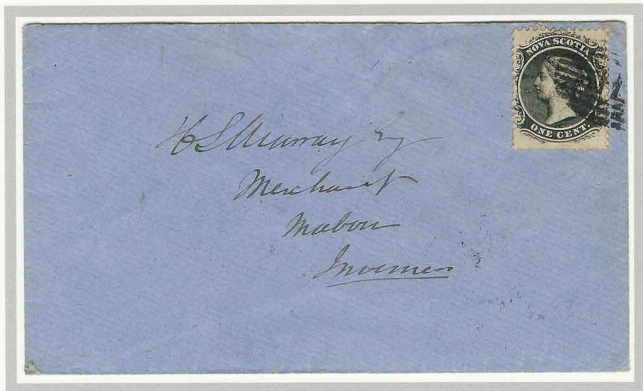 NOVA SCOTIA
ONE CENT.
H S Murray Esq
Merchant
Mabou
Inverness